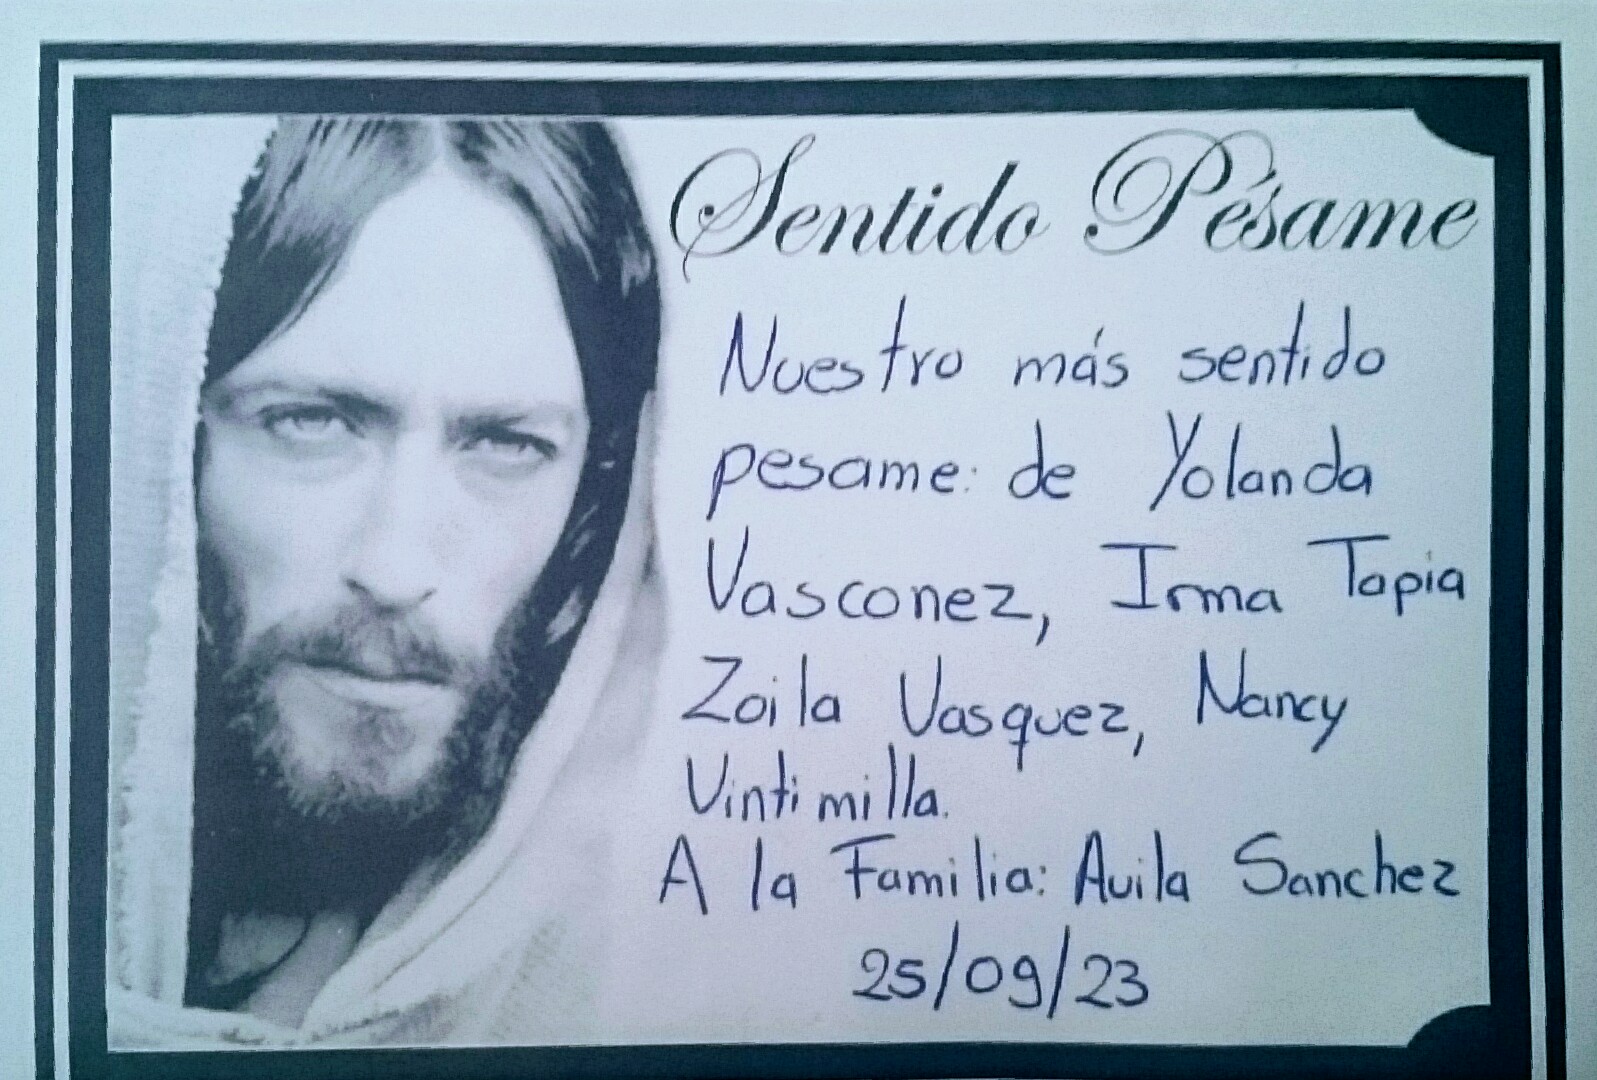 Sentido Pésame
Nuestro más sentido
pesame: de Yolanda
Vasconez, Irma Tapia
Zoila Vasquez, Nancy
Vintimilla.
A la Familia: Avila Sanchez
25/09/23